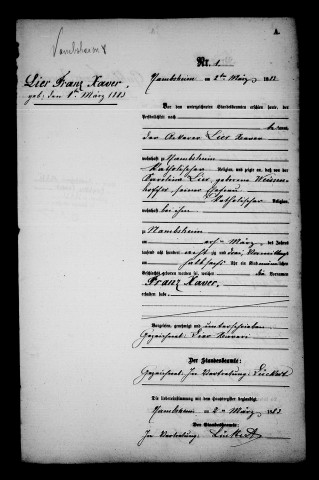 Nambsheim
A.
Nr. 1.
Nambsheim am 2ten März 1883
Lier Franz Xaver,
geb. den 1. März 1883
Vor dem unterzeichneten Standesbeamten erschien heute, der
Persönlichkeit nach
kannt,
der Ackerer Lier Xaver
wohnhaft zu Nambsheim
Katholischer Religion, und zeigte an, daß von der
Karolina Lier, geborene
seiner Ehefrau
Katholischer Religion,
wohnhaft bei ihm
zu Nambsheim
am ersten März des Jahres
tausend acht hundert achtzig und drei, Vormittags
um halb Uhr ein Kind männlichen
Geschlechts geboren worden sei, welches den Vornamen
Franz Xaver,
erhalten habe.
Vorgelesen, genehmigt und unterschrieben
Gezeichnet: Lier Xaveri
Der Standesbeamte:
Gezeichnet: In Vertretung: Lückert
Die Uebereinstimmung mit dem Hauptregister beglaubigt
Nambsheim am 2ten März 1883
Der Standesbeamte.
In Vertretung: Lückert